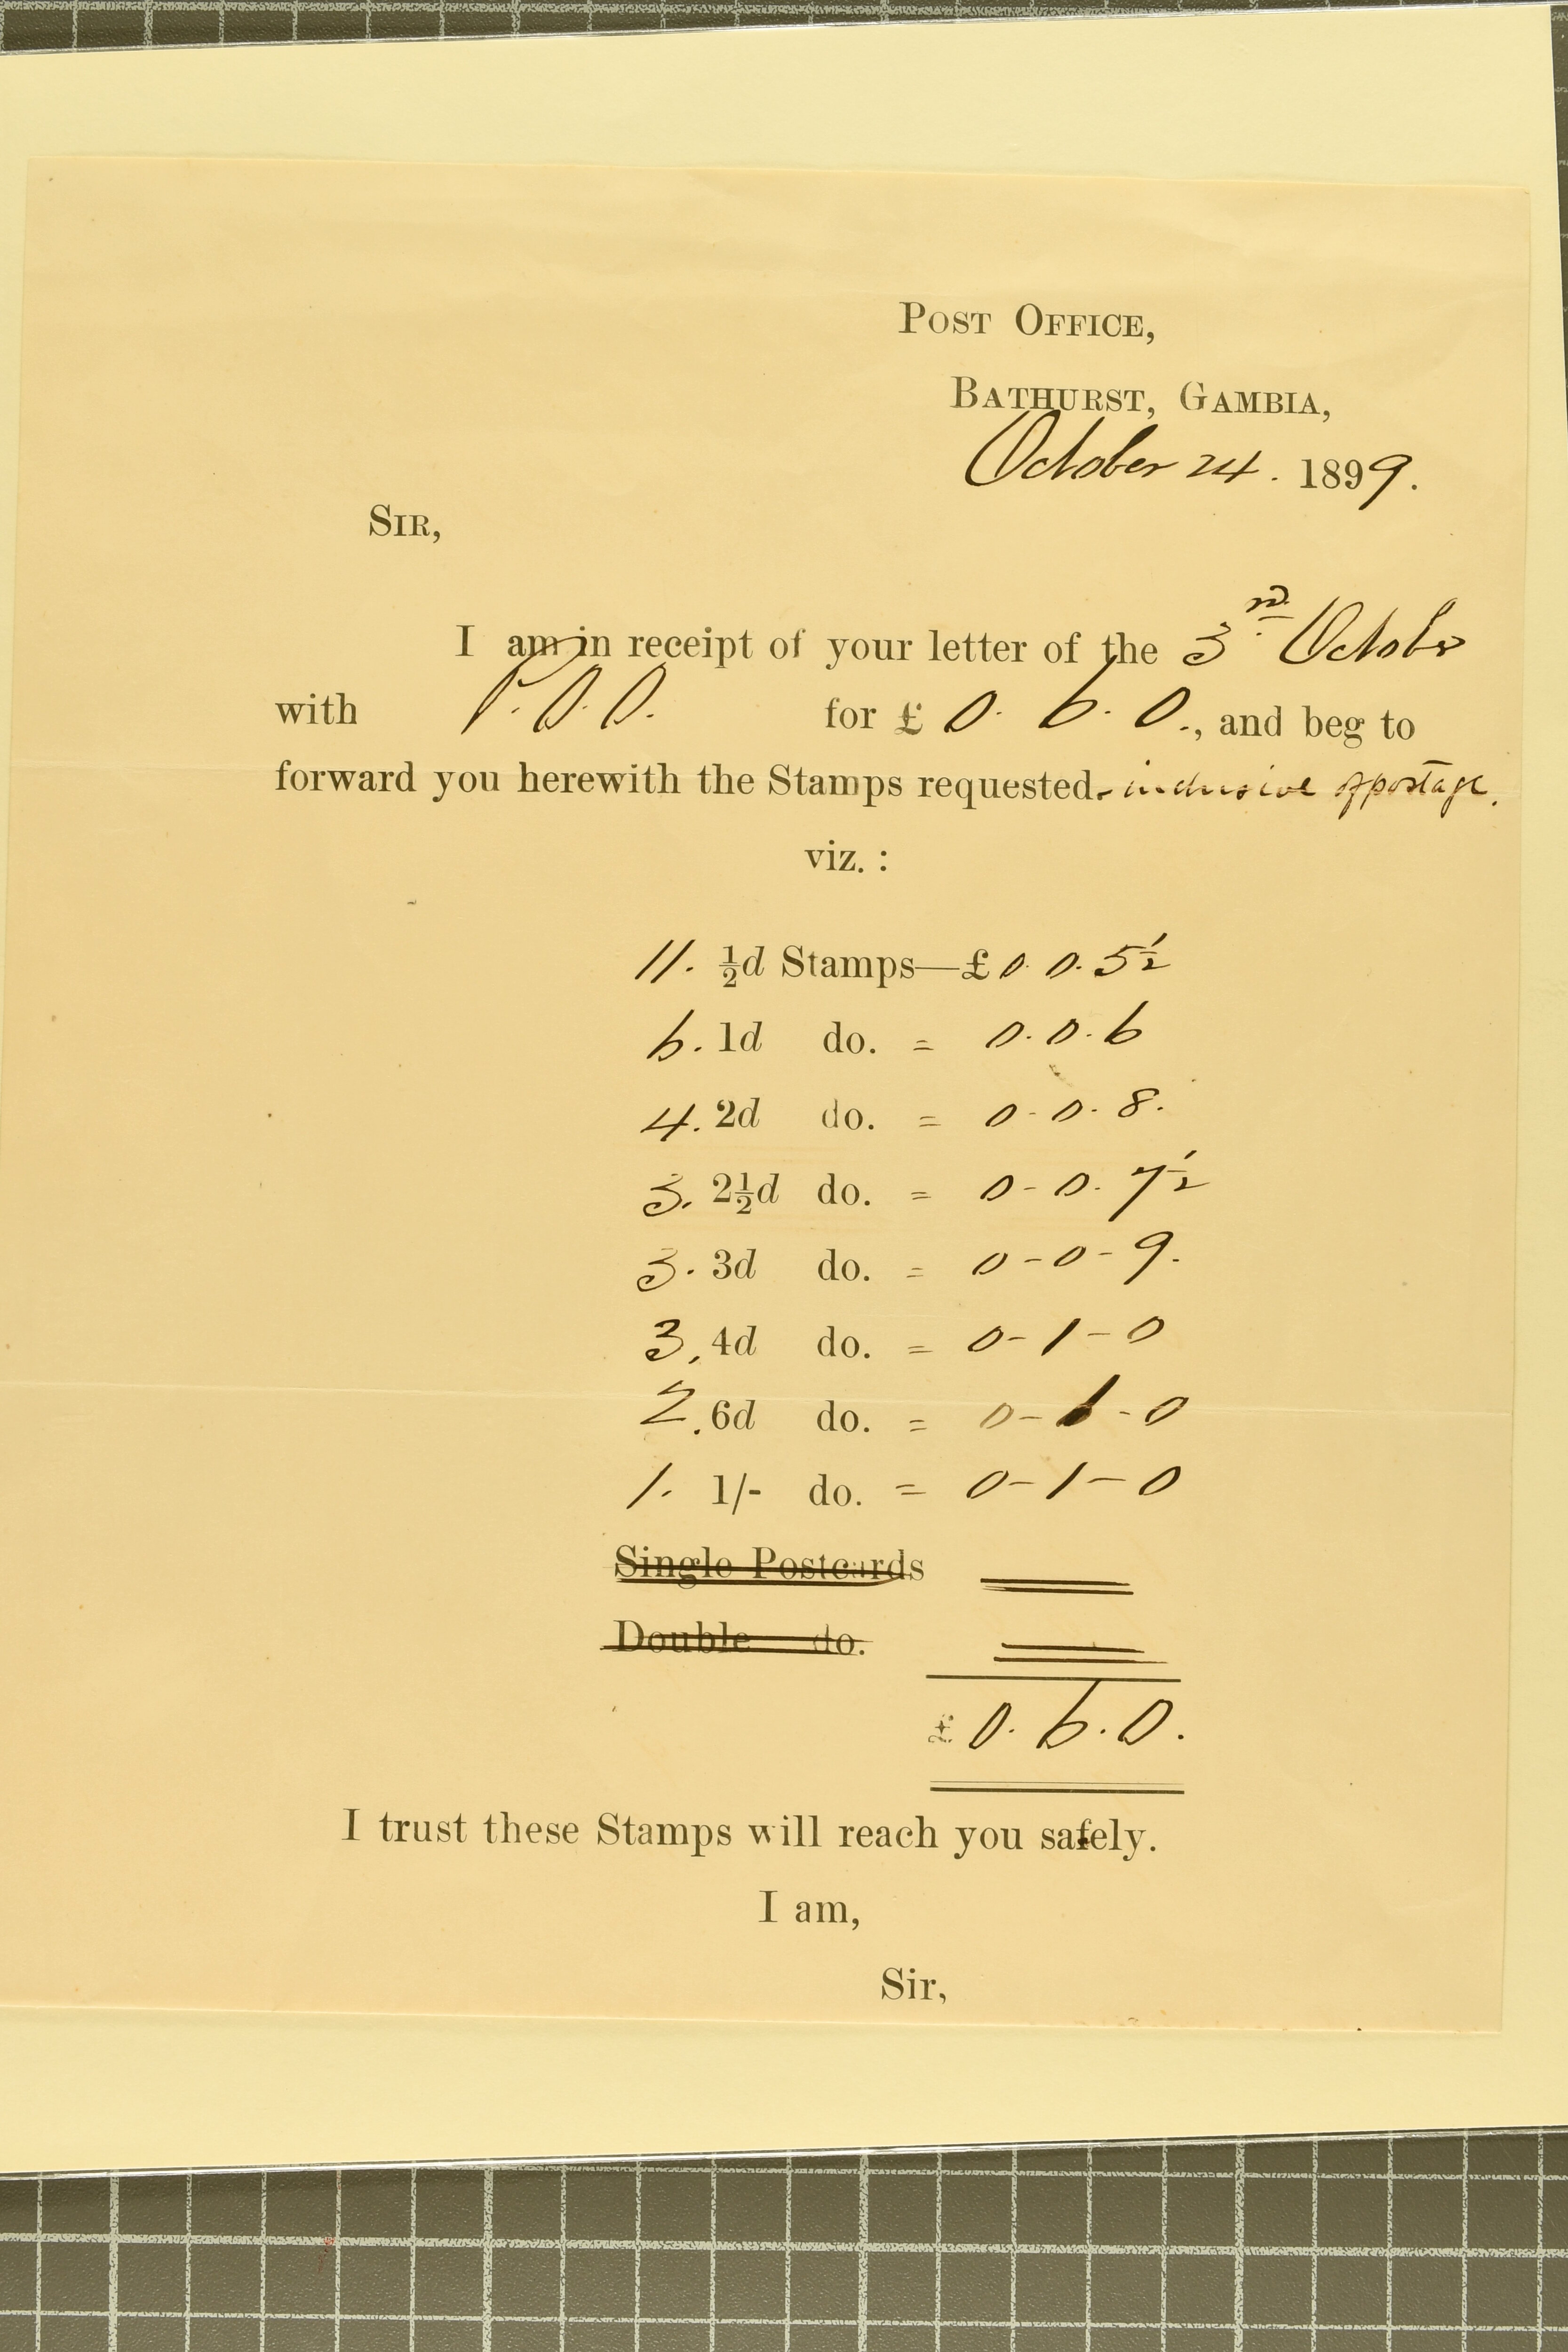 POST OFFICE,
BATHURST, GAMBIA,
October 24. 1899.
SIR,
I am in receipt of your letter of the 3rd. October
with P.O.O. for £ 0. 6. 0., and beg to
forward you herewith the Stamps requested. inclusive of postage.
viz. :
11. ½d Stamps—£ 0. 0. 5½
6. 1d do. = 0. 0. 6
4. 2d do. = 0-0. 8.
3. 2½d do. = 0-0. 7½
3. 3d do. = 0-0-9.
3. 4d do. = 0-1-0
2. 6d do. = 0-1-0
1. 1/- do. = 0-1-0
Single Postcards
Double do.
£ 0. 6. 0.
I trust these Stamps will reach you safely.
I am,
Sir,